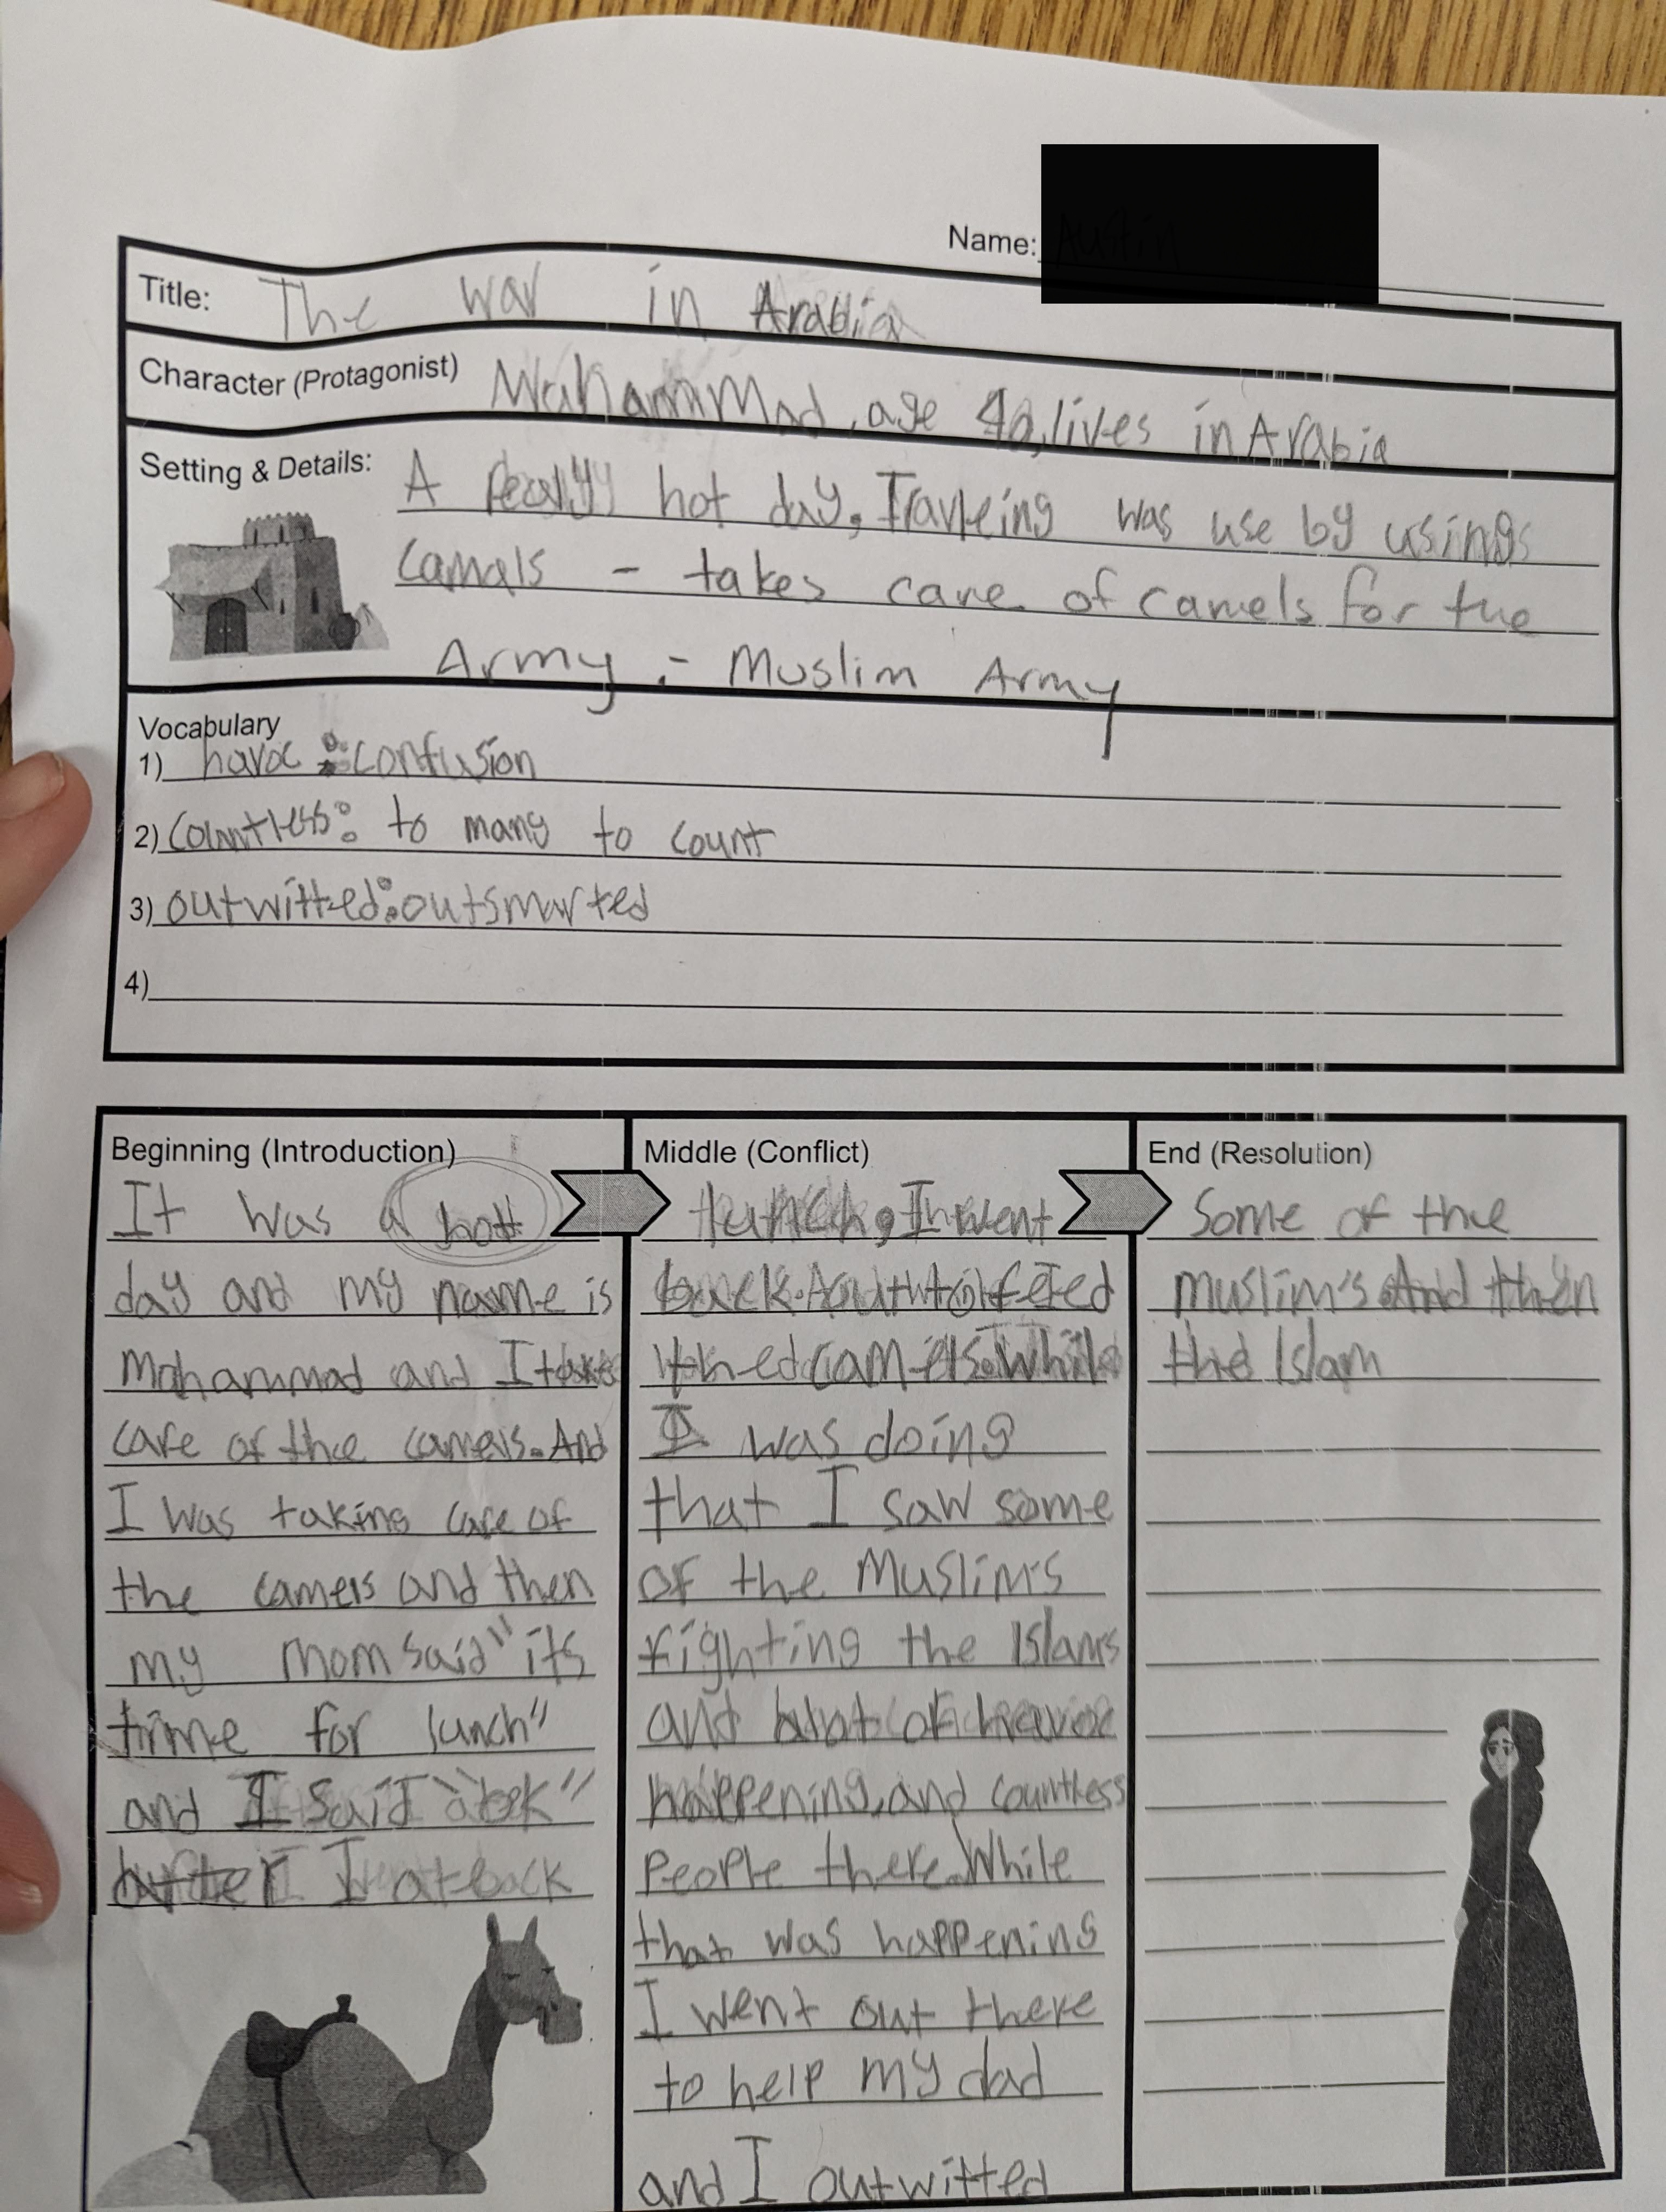 Name:
Title: The war in Arabia
Character (Protagonist) Muhammad, age 40, lives in Arabia
Setting & Details: A really hot day, Travleing was use by usings
camals - takes care of camels for the
Army - Muslim Army
Vocabulary
1) havoc: confusion
2) Countless: to many to count
3) outwitted: outsmarted
4)
Beginning (Introduction)
It was a hott
day and my name is
Mohammad and I take
care of the camels. And
I was taking care of
the camels and then
my mom said "its
time for lunch"
and I said "ok"
after I back
Middle (Conflict)
lunch, I went
back
the camels. While
I was doing
that I saw some
of the Muslim's
fighting the Islams
and havoc
happening, and countless
People there. While
that was happening
I went out there
to help my dad
and I outwitted
End (Resolution)
Some of the
Muslim's. And then
the Islam